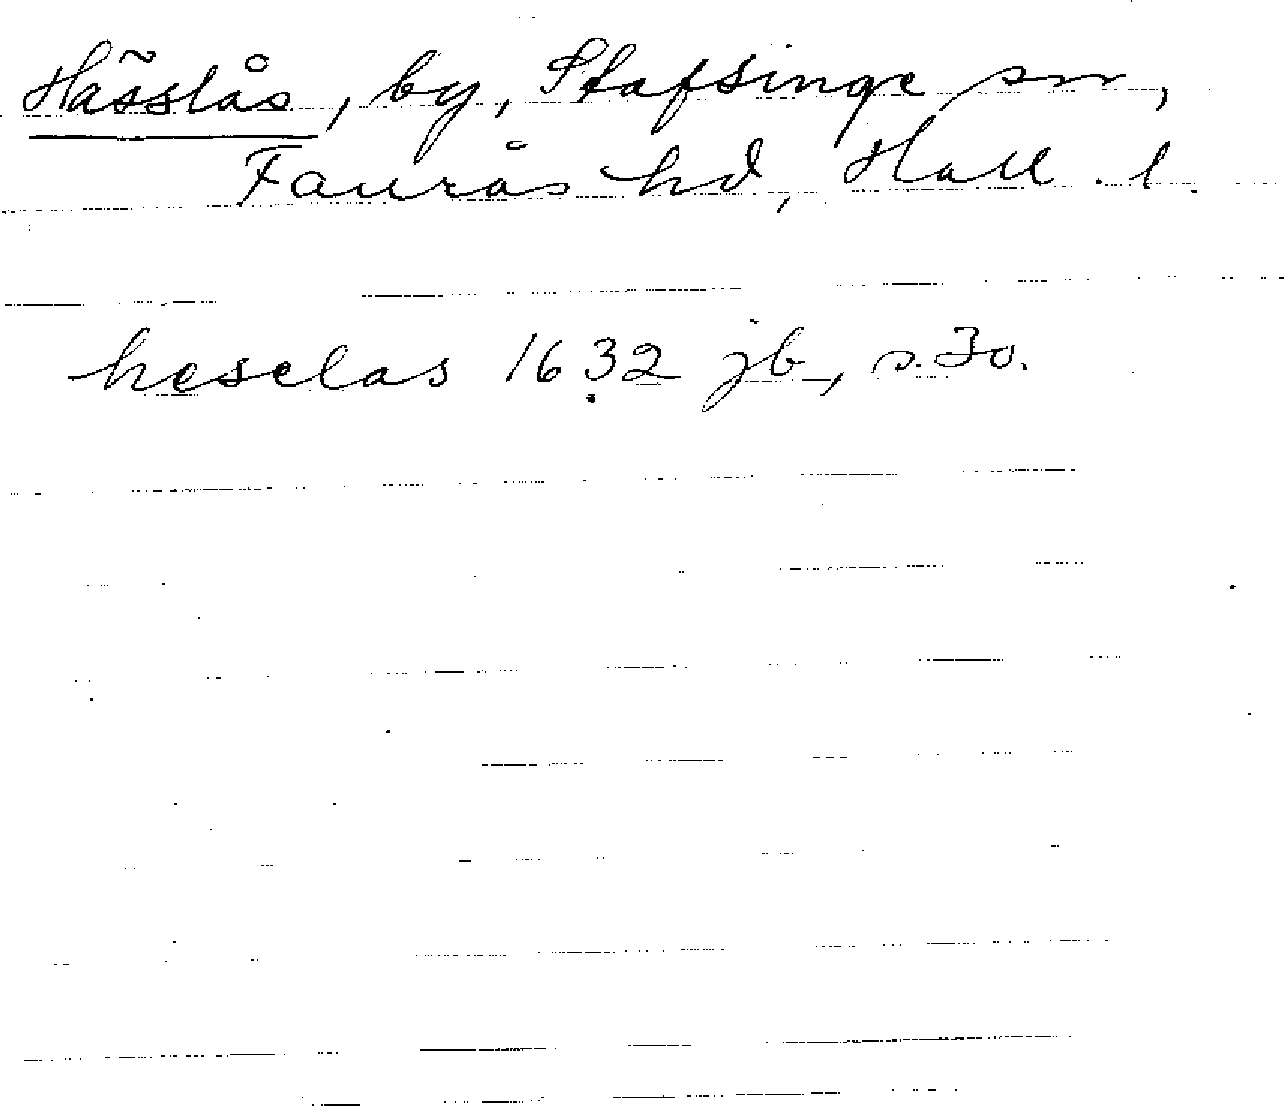 Hässlås, by, Stafsinge sn,
Faurås hd, Hall. l.
heselas 1632 jb, s. 30.